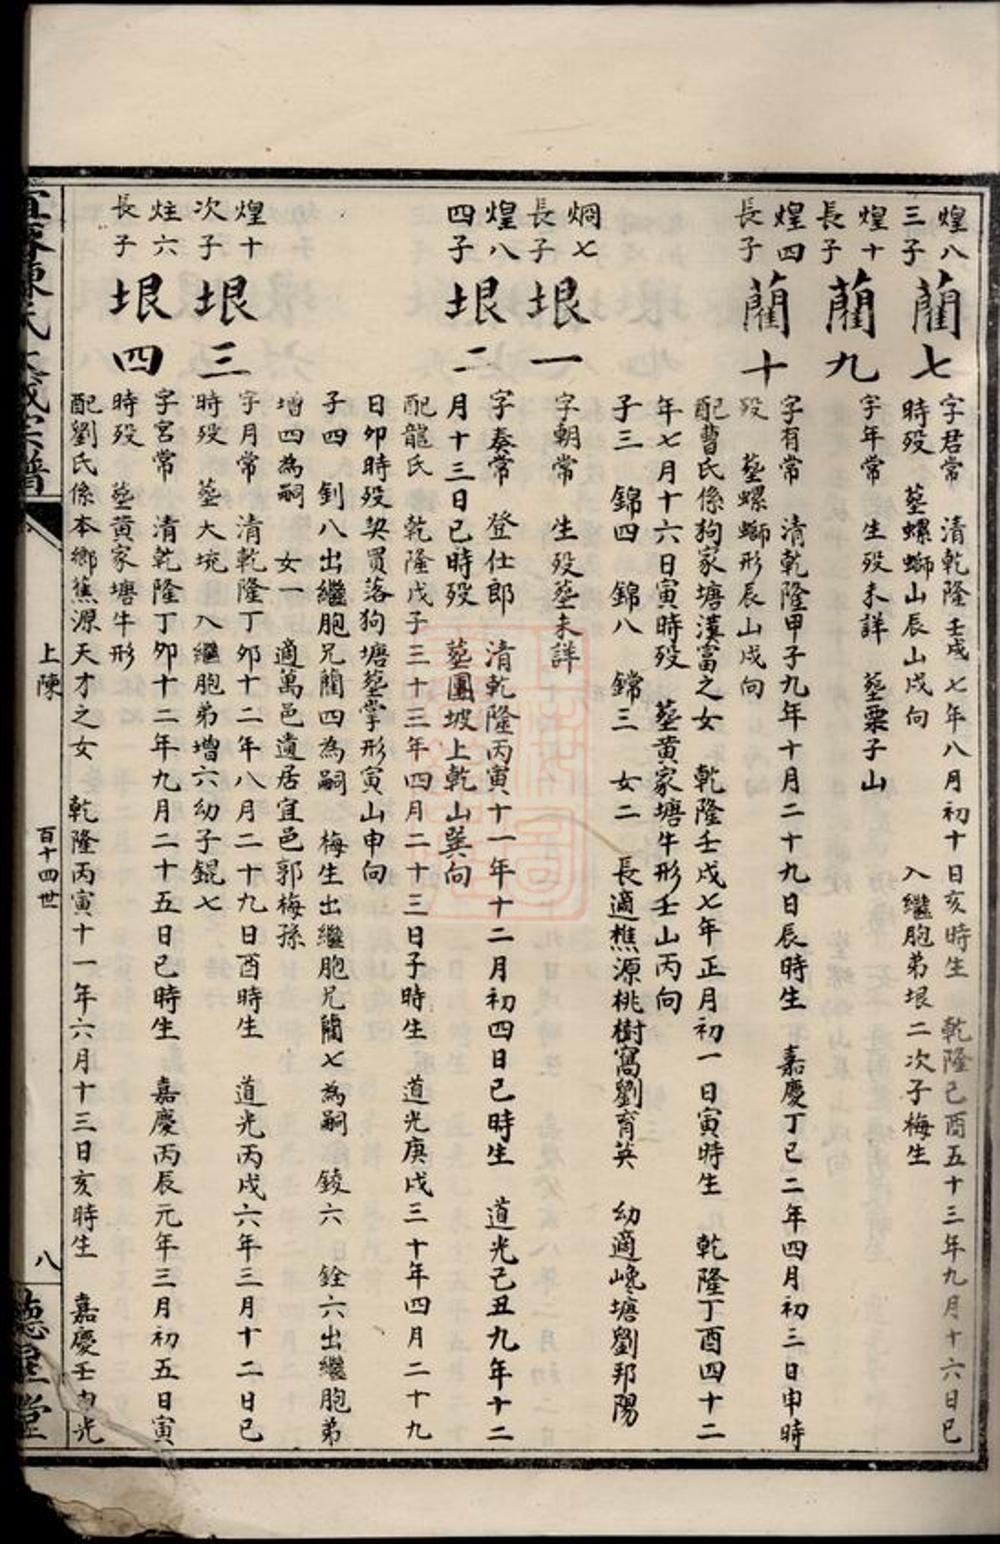 煌八
三子
藺七
字君常　清乾隆壬戌七年八月初十日亥時生　乾隆己酉五十三年九月十六日巳
時殁　塟螺螄山辰山戌向　入繼胞弟垠二次子梅生
煌十
長子
藺九
字年常　生殁未詳　塟粟子山
煌四
長子
藺十
字有常　清乾隆甲子九年十月二十九日辰時生　嘉慶丁巳二年四月初三日申時
殁　塟螺螄形辰山戌向
配曹氏係狗家塘漢富之女　乾隆壬戌七年正月初一日寅時生　乾隆丁酉四十二
年七月十六日寅時殁　塟黄家塘牛形壬山丙向
子三　錦四　錦八　錦三　女二　長適樵源桃樹窩劉育英　幼適巉塘劉邦陽
烱七
長子
垠一
字朝常　生殁塟未詳
煌八
四子
垠二
字奏常　登仕郎　清乾隆丙寅十一年十二月初四日巳時生　道光己丑九年十二
月十三日巳時殁　塟團坡上乾山巽向
配龍氏　乾隆戊子三十三年四月二十三日子時生　道光庚戌三十年四月二十九
日卯時殁契買落狗塘塟掌形寅山申向
子四　釗八出繼胞兄藺四為嗣　梅生出繼胞兄藺七為嗣　錂六　銓六出繼胞弟
增四為嗣　女一　適萬邑遺居宜邑郭梅孫
煌十
次子
垠三
字月常　清乾隆丁卯十二年八月二十九日酉時生　道光丙戌六年三月十二日巳
時殁　塟大垸　入繼胞弟增六幼子錕七
炷六
長子
垠四
字宮常　清乾隆丁卯十二年九月二十五日巳時生　嘉慶丙辰元年三月初五日寅
時殁　塟黄家塘牛形
配劉氏係本鄉蕉源天才之女　乾隆丙寅十一年六月十三日亥時生　嘉慶壬
上陳
百十四世
八
德星堂